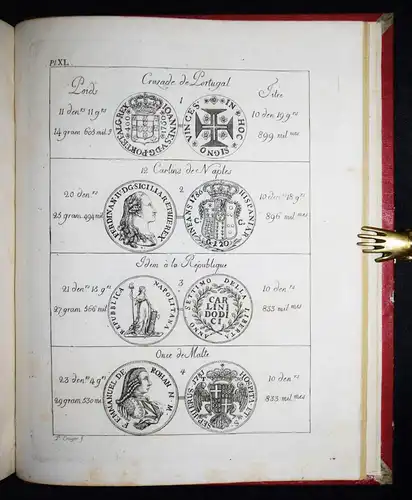 Pl XL.
Crusade de Portugal
Poids
Titre
1
11 den.rs 11 g.ns
14 gram. 608 mil.s
JOANNES V.D.G.PORT.ET.ALG.REX
IN HOC SIGNO VINCES
10 den. 19 g.ns
899 mil.mes
12 Carlins de Naples
2
20 den.rs
25 gram. 494 mil.
FERDINAN.IV.D.G.SICILIAR.ET.HIE.REX
HISPANIAR INFANS 1786
C. C.
G.120
10 den.rs 18 g.ns
896 mil.mes
Idem à la République
3
21 den.rs 15 g.ns
27 gram. 566 mil.
REPUBBLICA NAPOLITANA
ANNO SETTIMO DELLA LIBERTA
CAR
LINI
DODI
CI
10 den.rs
833 mil.mes
Once de Malte
4
23 den.rs 4 g.ns
29 gram. 530 mil.
F. EMMANUEL DE ROHAN M.M.
1781
HOSPITAL ET S.
SEP. HIERUS
10 den.rs
833 mil.mes